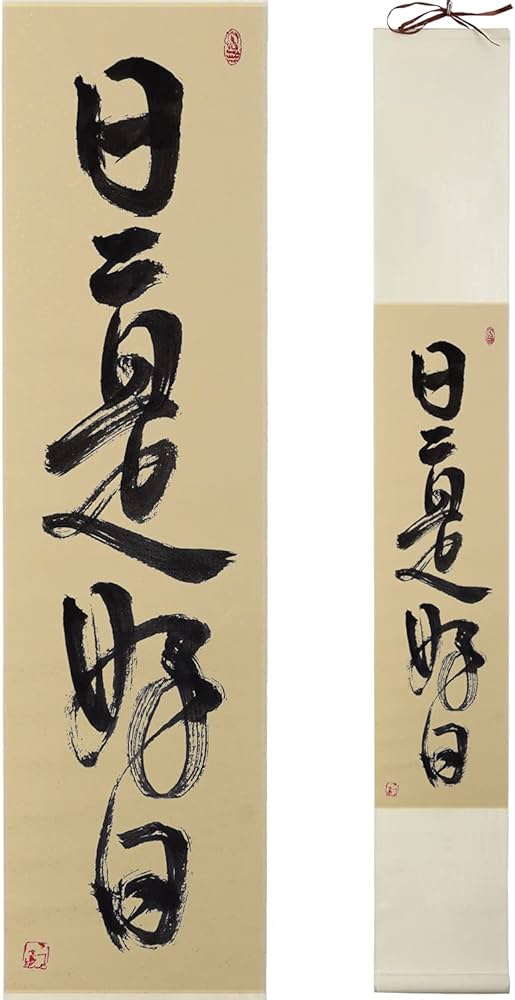 日々是好日
日々是好日